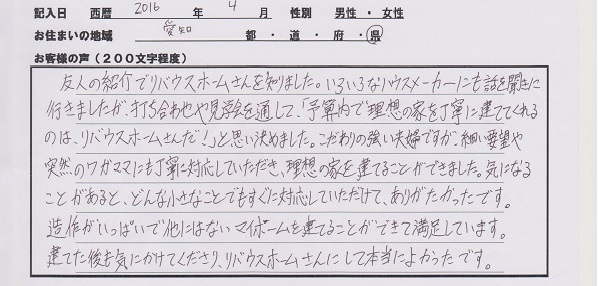 記入日 西暦 2016 年 4 月 性別 男性・女性
お住まいの地域 愛知 都・道・府・県
お客様の声(200文字程度)
友人の紹介でリバウスホームさんを知りました。いろいろなハウスメーカーにも話を聞きに
行きましたが、打ち合わせや見学会を通して、「予算内で理想の家を丁寧に建ててくれる
のは、リバウスホームさんだ!」と思い決めました。こだわりの強い夫婦ですが、細い要望や
突然のワガママにも丁寧に対応していただき、理想の家を建てることができました。気になる
ことがあると、どんな小さなことでもすぐに対応していただけて、ありがたかったです。
造作がいっぱいで他にはないマイホームを建てることができて満足しています。
建てた後も気にかけてくださり、リバウスホームさんにして本当によかったです。